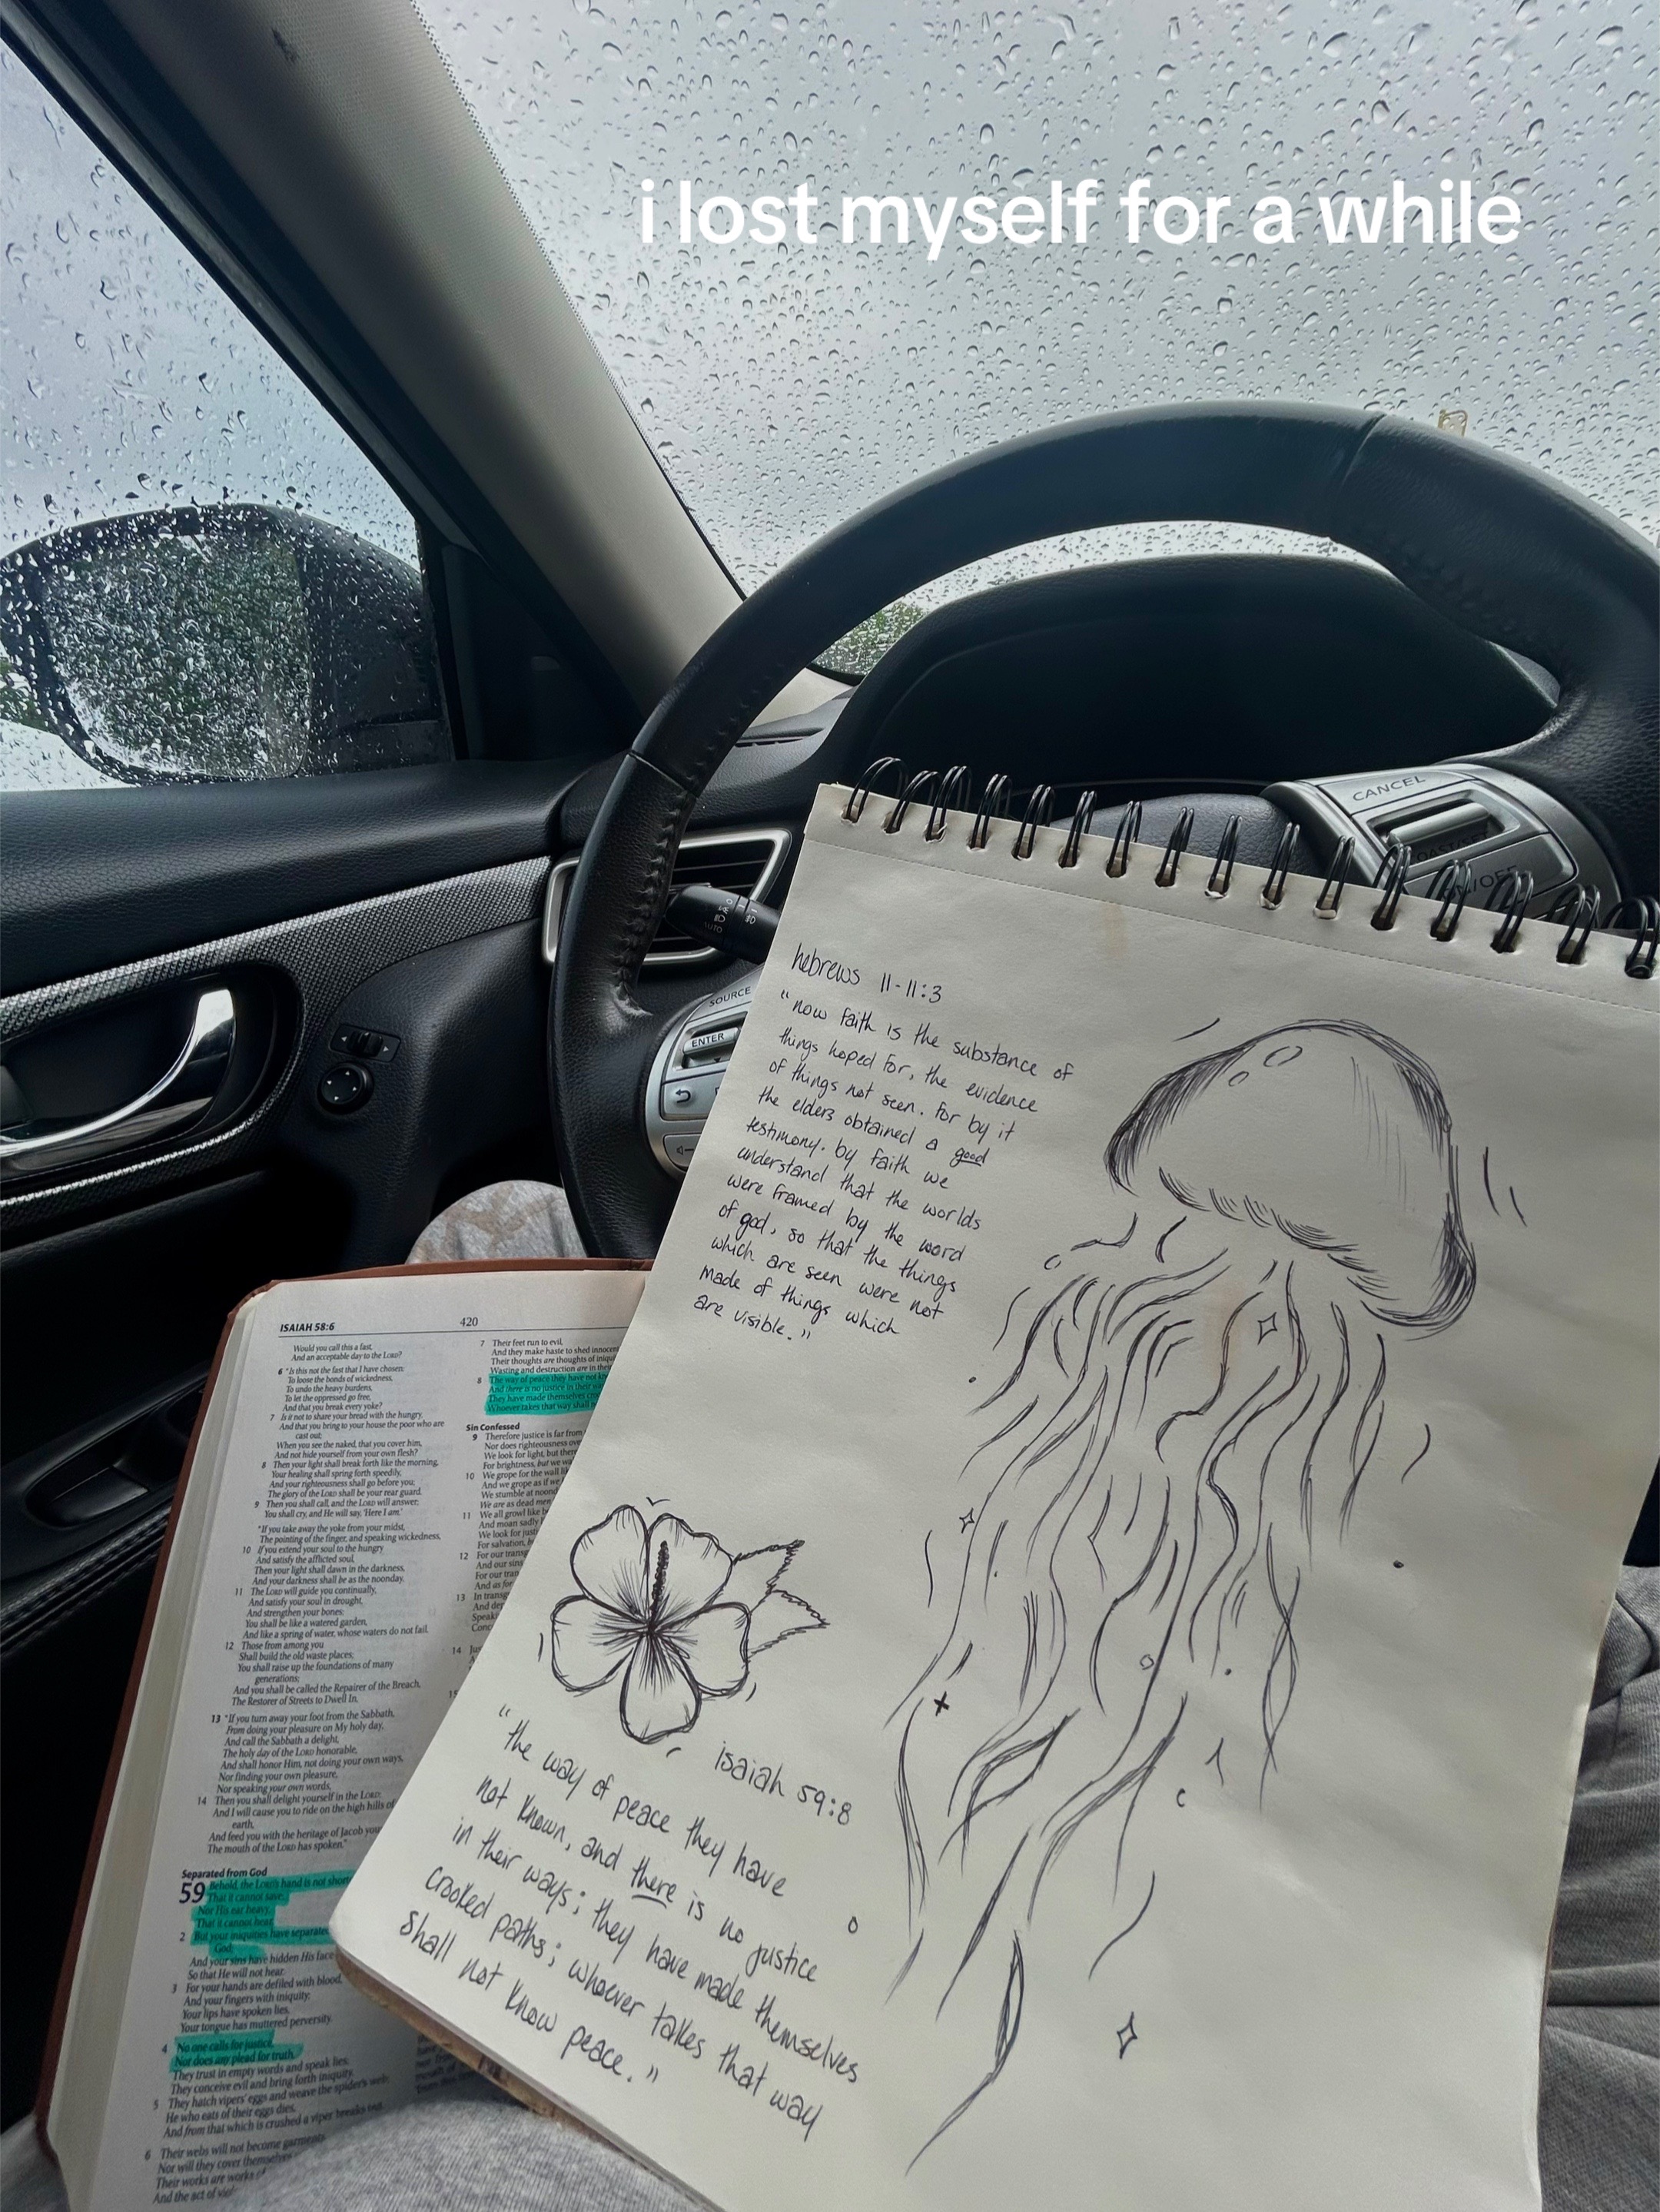 i lost myself for a while
CANCEL
COAST/
ON/OFF
AUTO
SOURCE
ENTER
hebrews 11-11:3
"now faith is the substance of
things hoped for, the evidence
of things not seen. for by it
the elders obtained a good
testimony. by faith we
understand that the worlds
were framed by the word
of god, so that the things
which are seen were not
made of things which
are visible."
isaiah 59:8
"the way of peace they have
not known, and there is no justice
in their ways; they have made themselves
crooked paths; whoever takes that way
shall not know peace."
ISAIAH 58:6
420
Would you call this a fast,
And an acceptable day to the LORD?
6 "Is this not the fast that I have chosen:
To loose the bonds of wickedness,
To undo the heavy burdens,
To let the oppressed go free,
And that you break every yoke?
7 Is it not to share your bread with the hungry,
And that you bring to your house the poor who are
cast out;
When you see the naked, that you cover him,
And not hide yourself from your own flesh?
8 Then your light shall break forth like the morning,
Your healing shall spring forth speedily,
And your righteousness shall go before you;
The glory of the LORD shall be your rear guard.
9 Then you shall call, and the LORD will answer;
You shall cry, and He will say, 'Here I am.'
"If you take away the yoke from your midst,
The pointing of the finger, and speaking wickedness,
10 If you extend your soul to the hungry
And satisfy the afflicted soul,
Then your light shall dawn in the darkness,
And your darkness shall be as the noonday.
11 The LORD will guide you continually,
And satisfy your soul in drought,
And strengthen your bones;
You shall be like a watered garden,
And like a spring of water, whose waters do not fail.
12 Those from among you
Shall build the old waste places;
You shall raise up the foundations of many
generations;
And you shall be called the Repairer of the Breach,
The Restorer of Streets to Dwell In.
13 "If you turn away your foot from the Sabbath,
From doing your pleasure on My holy day,
And call the Sabbath a delight,
The holy day of the LORD honorable,
And shall honor Him, not doing your own ways,
Nor finding your own pleasure,
Nor speaking your own words,
14 Then you shall delight yourself in the LORD;
And I will cause you to ride on the high hills of
earth,
And feed you with the heritage of Jacob your
The mouth of the LORD has spoken."
Separated from God
59 Behold, the LORD's hand is not short
That it cannot save;
Nor His ear heavy,
That it cannot hear.
2 But your iniquities have separated
God;
And your sins have hidden His face
So that He will not hear.
3 For your hands are defiled with blood,
And your fingers with iniquity;
Your lips have spoken lies,
Your tongue has muttered perversity.
4 No one calls for justice,
Nor does any plead for truth.
They trust in empty words and speak lies;
They conceive evil and bring forth iniquity.
5 They hatch vipers' eggs and weave the spider's web;
He who eats of their eggs dies,
And from that which is crushed a viper breaks out.
6 Their webs will not become garments,
Nor will they cover themselves
Their works are works of
And the act of
7 Their feet run to evil,
And they make haste to shed innocent
Their thoughts are thoughts of
Wasting and destruction are in their
8 The way of peace they have not
And there is no justice in their
They have made themselves
Whoever takes that way shall
Sin Confessed
9 Therefore justice is far from
Nor does righteousness
We look for light, but there
For brightness, but we
10 We grope for the wall
And we grope as if
We stumble at
We are as dead men
11 We all growl like
And moan sadly
We look for
For salvation,
12 For our
And our sins
For our
And as for
13 In
And
14